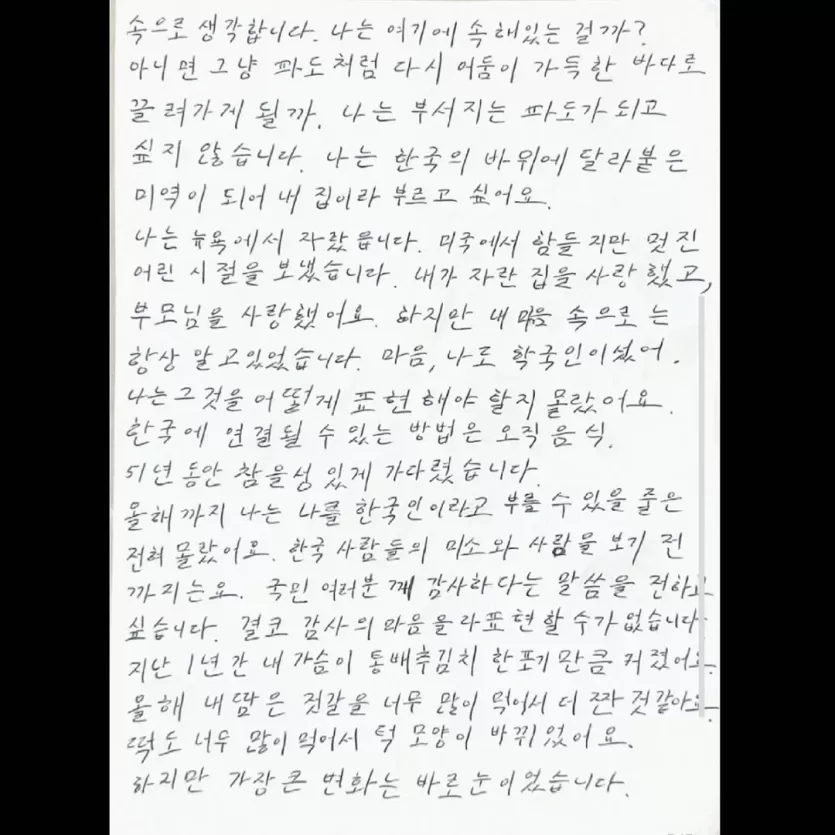 속으로 생각합니다. 나는 여기에 속해있는 걸까?
아니면 그냥 파도처럼 다시 어둠이 가득한 바다로
끌려가게 될까. 나는 부서지는 파도가 되고
싶지 않습니다. 나는 한국의 바위에 달라붙은
미역이 되어 내 집이라 부르고 싶어요.
나는 뉴욕에서 자랐읍니다. 미국에서 함들지만 멋진
어린 시절을 보냈습니다. 내가 자란 집을 사랑했고,
부모님을 사랑했어요. 하지만 내 마음 속으로는
항상 알고있었습니다. 마음, 나로 학국인이셨어.
나는 그것을 어떻게 표현해야 할지 몰랐어요.
한국에 연결될 수 있는 방법은 오직 음식.
51년 동안 참을성 있게 가다렸습니다.
올해까지 나는 나를 한국인이라고 부를 수 있을 줄은
전혀 몰랐어요. 한국 사람들의 미소와 사람을 보기 전
까지는요. 국민 여러분께 감사하다는 말씀을 전하고
싶습니다. 결코 감사의 마음을 라표현할 수가 없습니다.
지난 1년간 내 가슴이 통배추김치 한포기만큼 커졌어요.
올해 내 땀은 젓갈을 너무 많이 먹어서 더 짠 것 같아요.
떡도 너무 많이 먹어서 턱 모양이 바뀌었어요.
하지만 가장 큰 변화는 바로 눈이었습니다.